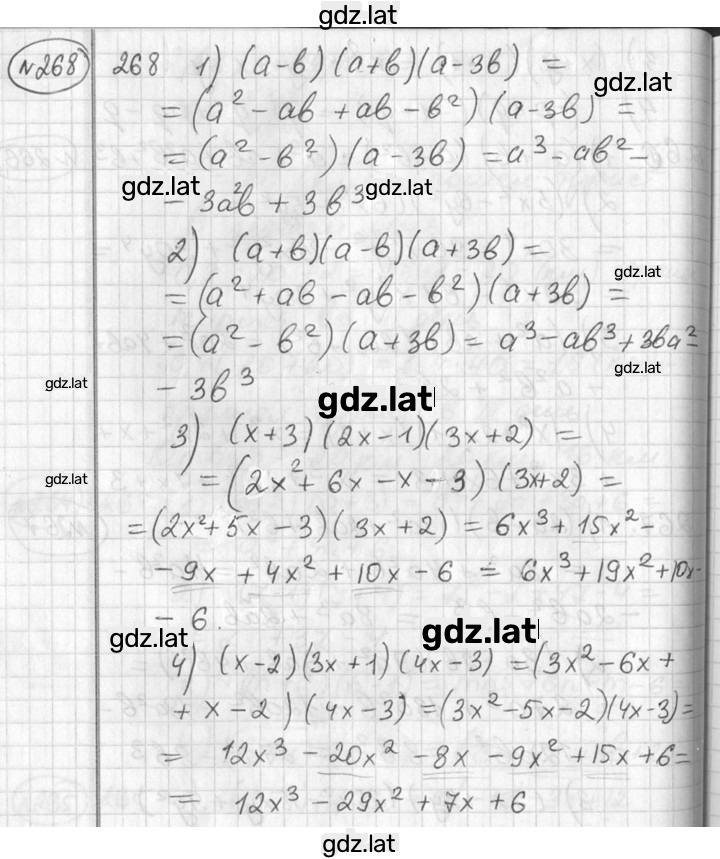 gdz.lat
№268 268 1) (a-b)(a+b)(a-3b) =
gdz.lat
= (a² - ab + ab - b²)(a-3b) =
= (a² - b²)(a - 3b) = a³ - ab² -
gdz.lat gdz.lat
- 3a²b + 3b³
2) (a+b)(a-b)(a+3b) =
gdz.lat
= (a² + ab - ab - b²)(a+3b) =
= (a² - b²)(a+3b) = a³ - ab³ + 3ba² -
gdz.lat
gdz.lat
- 3b³
gdz.lat
3) (x+3)(2x-1)(3x+2) =
gdz.lat
= (2x² + 6x - x - 3)(3x+2) =
= (2x² + 5x - 3)(3x+2) = 6x³ + 15x² -
- 9x + 4x² + 10x - 6 = 6x³ + 19x² + 10x -
- 6.
gdz.lat gdz.lat
4) (x-2)(3x+1)(4x-3) = (3x² - 6x +
+ x - 2)(4x-3) = (3x² - 5x - 2)(4x-3) =
= 12x³ - 20x² - 8x - 9x² + 15x + 6 =
= 12x³ - 29x² + 7x + 6
gdz.lat